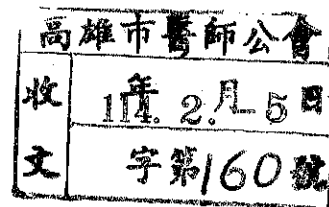 高雄市醫師公會
收文
114年2月-5日
字第160號